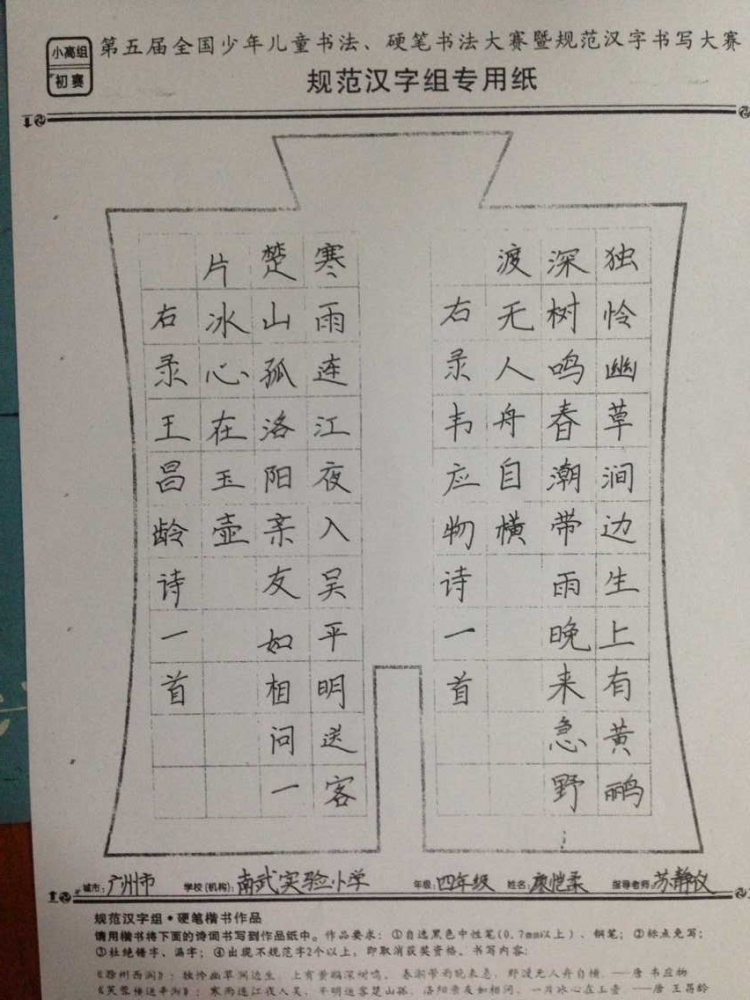 小高组
初赛
第五届全国少年儿童书法、硬笔书法大赛暨规范汉字书写大赛
规范汉字组专用纸
独怜幽草涧边生上有黄鹂
深树鸣春潮带雨晚来急野
渡无人舟自横
右录韦应物诗一首
寒雨连江夜入吴平明送客
楚山孤洛阳亲友如相问一
片冰心在玉壶
右录王昌龄诗一首
城市：广州市 学校(机构)：南武实验小学 年级：四年级 姓名：康恺柔 指导老师：苏静仪
规范汉字组·硬笔楷书作品
请用楷书将下面的诗词书写到作品纸中。作品要求：①自选黑色中性笔(0.7mm以上)、钢笔；②标点免写；
③杜绝错字、漏字；④出现不规范字2个以上，即取消获奖资格。书写内容：
《滁州西涧》：独怜幽草涧边生，上有黄鹂深树鸣。春潮带雨晚来急，野渡无人舟自横。——唐 韦应物
《芙蓉楼送辛渐》：寒雨连江夜入吴，平明送客楚山孤。洛阳亲友如相问，一片冰心在玉壶。——唐 王昌龄